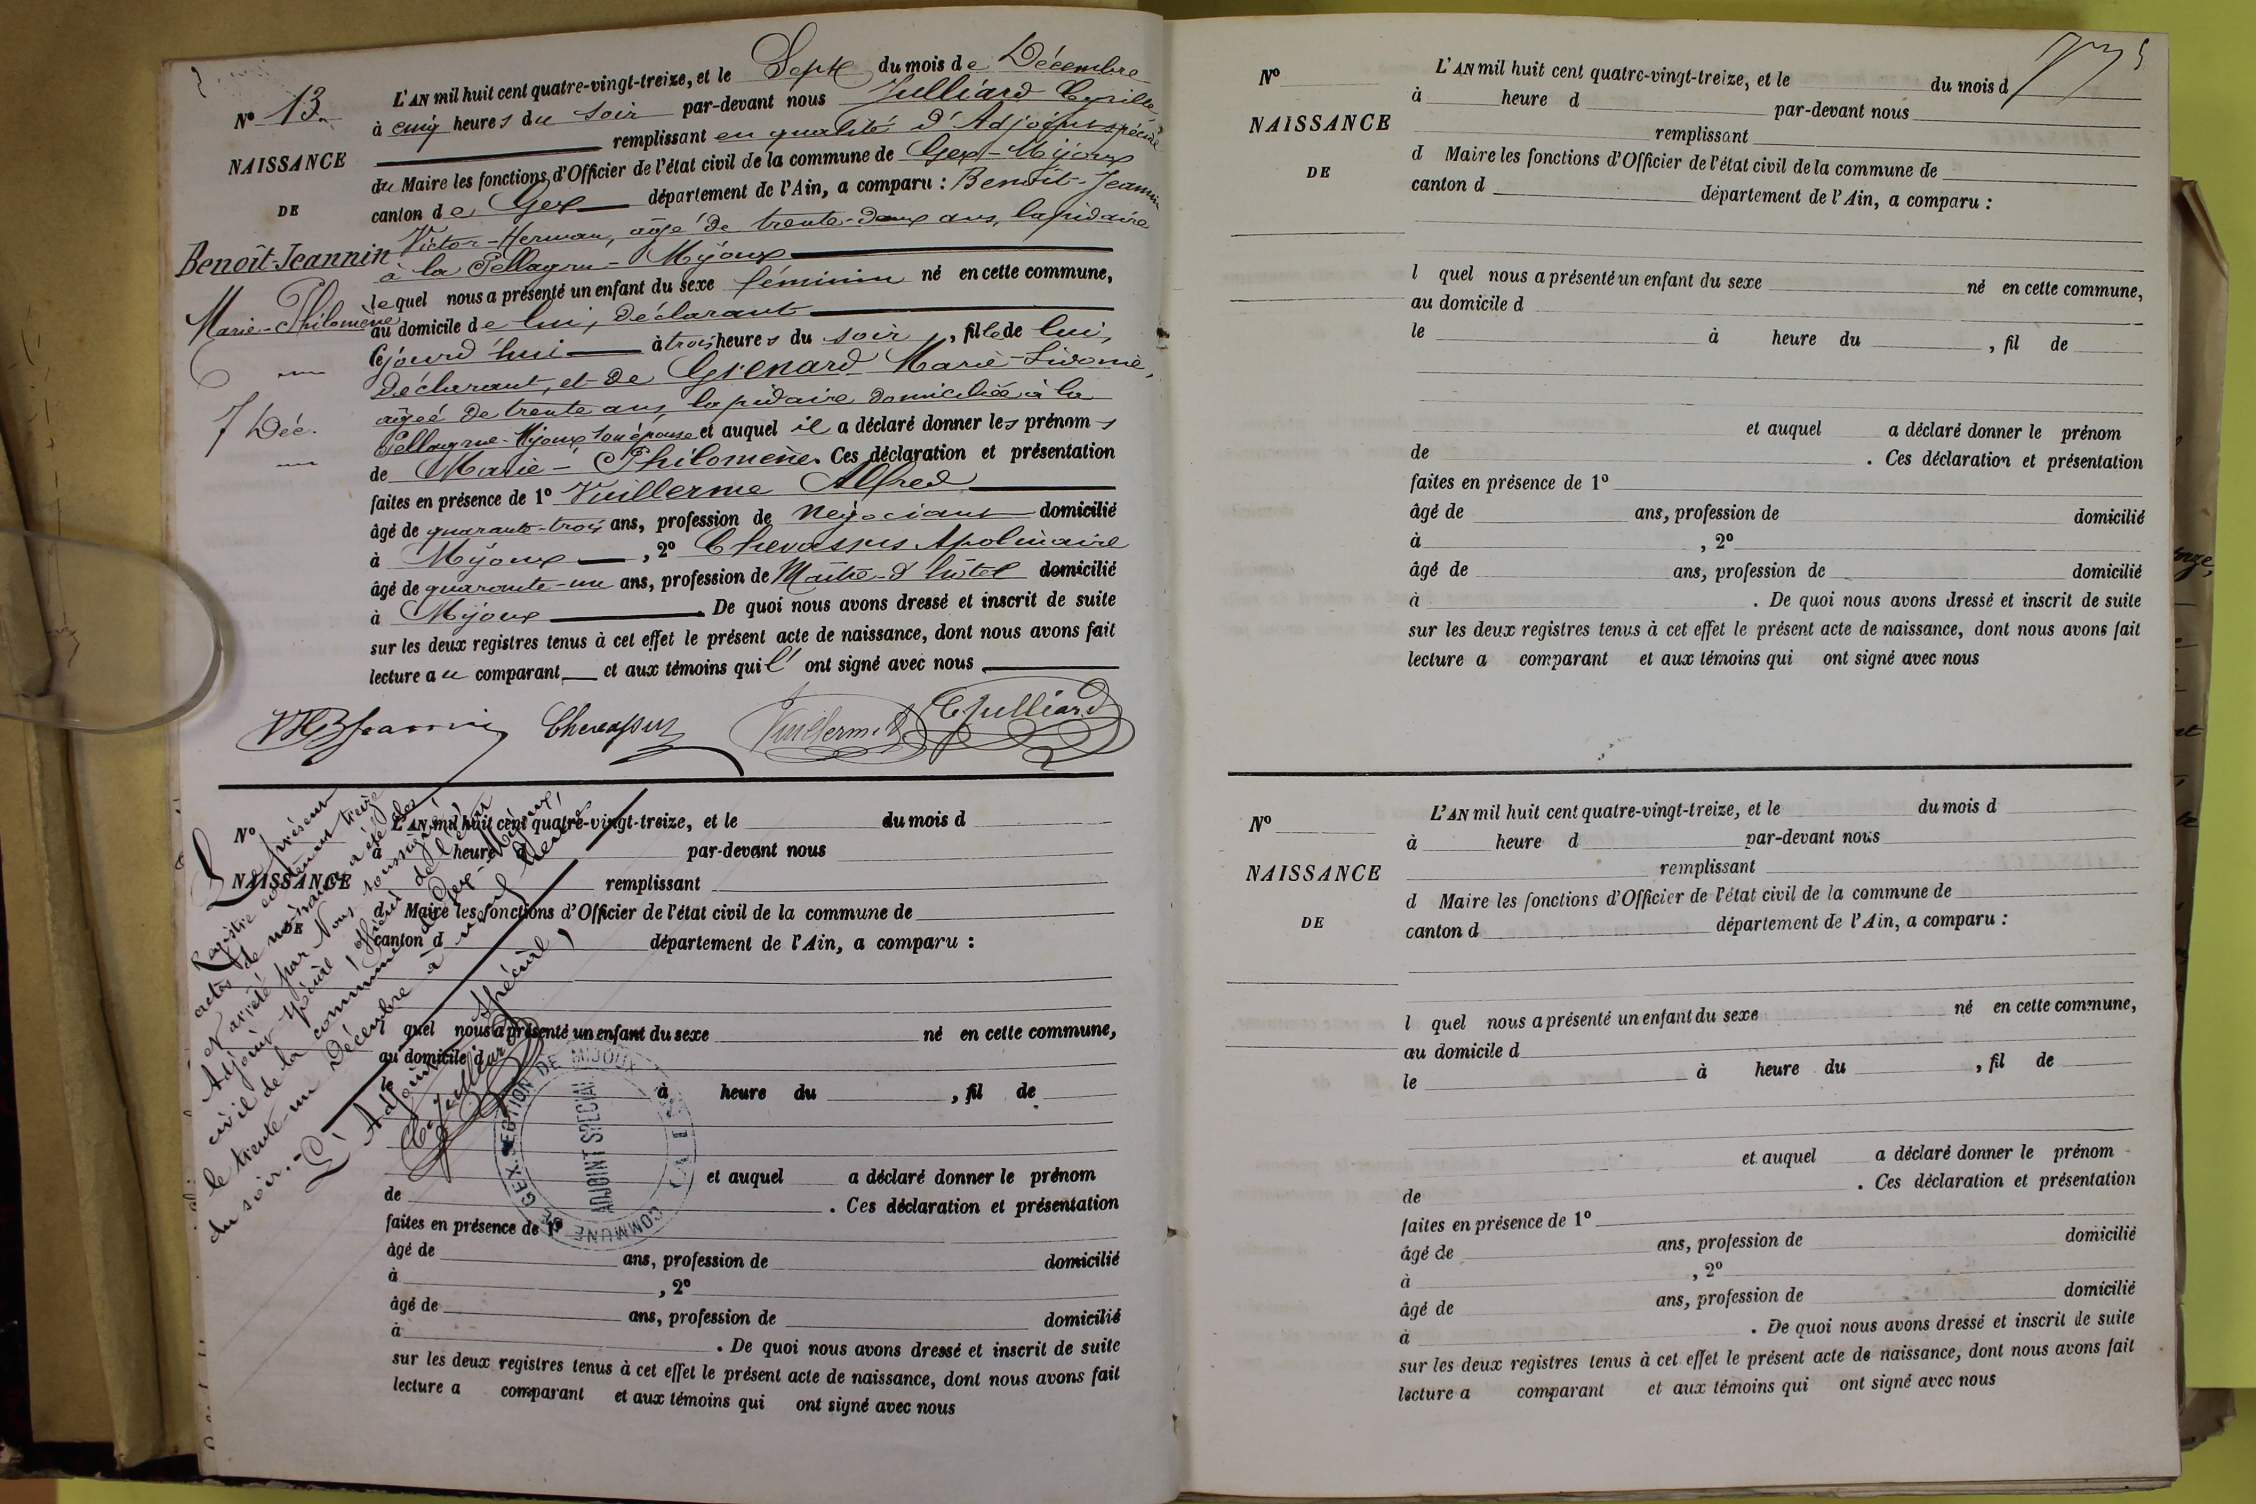 L'AN mil huit cent quatre-vingt-treize, et le Sept du mois de Décembre
N° 13.
à cinq heures du soir par-devant nous Julliard Cyrille
remplissant en qualité d'Adjoint spécial
NAISSANCE
du Maire les fonctions d'Officier de l'état civil de la commune de Gex-Mijoux
DE
canton de Gex département de l'Ain, a comparu : Benoît-Jeannin
Benoît-Jeannin
Victor-Herman, âgé de trente-deux ans, lapidaire
à la Pellagrue-Mijoux
Marie-Philomène
lequel nous a présenté un enfant du sexe féminin né en cette commune,
au domicile de lui, déclarant
Cejourd'hui à trois heures du soir, fille de lui,
déclarant, et de Grenard Marie-Sidonie,
âgée de trente ans, lapidaire domiciliée à la
7 Déc.
Pellagrue-Mijoux son épouse et auquel il a déclaré donner les prénoms
de Marie-Philomène. Ces déclaration et présentation
faites en présence de 1° Vuillerme Alfred
âgé de quarante-trois ans, profession de Négociant domicilié
à Mijoux, 2° Chevassus Apolinaire
âgé de quarante-un ans, profession de Maître-d'hôtel domicilié
à Mijoux. De quoi nous avons dressé et inscrit de suite
sur les deux registres tenus à cet effet le présent acte de naissance, dont nous avons fait
lecture au comparant et aux témoins qui l' ont signé avec nous
VHBJeannin Chevassus Vuillerme CJulliard
Le présent
Registre contenant treize
actes de naissance a été clos
et arrêté par Nous soussigné
Adjoint spécial, officier de l'état
civil de la commune de Gex-Mijoux,
le trente-un Décembre à neuf heures
du soir.-
L'Adjoint Spécial,
C. Julliard
COMMUNE DE GEX. SECTION DE MIJOUX
ADJOINT SPECIAL
(AIN)
N°
NAISSANCE
DE
L'AN mil huit cent quatre-vingt-treize, et le du mois d
à heure d par-devant nous
remplissant
d Maire les fonctions d'Officier de l'état civil de la commune de
canton d département de l'Ain, a comparu :
l quel nous a présenté un enfant du sexe né en cette commune,
au domicile d
le à heure du , fil de
et auquel a déclaré donner le prénom
de . Ces déclaration et présentation
faites en présence de 1°
âgé de ans, profession de domicilié
à , 2°
âgé de ans, profession de domicilié
à . De quoi nous avons dressé et inscrit de suite
sur les deux registres tenus à cet effet le présent acte de naissance, dont nous avons fait
lecture a comparant et aux témoins qui ont signé avec nous
N°
NAISSANCE
DE
L'AN mil huit cent quatre-vingt-treize, et le du mois d
à heure d par-devant nous
remplissant
d Maire les fonctions d'Officier de l'état civil de la commune de
canton d département de l'Ain, a comparu :
l quel nous a présenté un enfant du sexe né en cette commune,
au domicile d
le à heure du , fil de
et auquel a déclaré donner le prénom
de . Ces déclaration et présentation
faites en présence de 1°
âgé de ans, profession de domicilié
à , 2°
âgé de ans, profession de domicilié
à . De quoi nous avons dressé et inscrit de suite
sur les deux registres tenus à cet effet le présent acte de naissance, dont nous avons fait
lecture a comparant et aux témoins qui ont signé avec nous
N°
NAISSANCE
DE
L'AN mil huit cent quatre-vingt-treize, et le du mois d
à heure d par-devant nous
remplissant
d Maire les fonctions d'Officier de l'état civil de la commune de
canton d département de l'Ain, a comparu :
l quel nous a présenté un enfant du sexe né en cette commune,
au domicile d
le à heure du , fil de
et auquel a déclaré donner le prénom
de . Ces déclaration et présentation
faites en présence de 1°
âgé de ans, profession de domicilié
à , 2°
âgé de ans, profession de domicilié
à . De quoi nous avons dressé et inscrit de suite
sur les deux registres tenus à cet effet le présent acte de naissance, dont nous avons fait
lecture a comparant et aux témoins qui ont signé avec nous